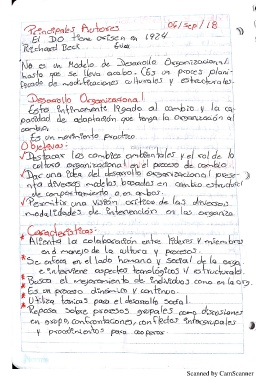 Principales Autores 06/sep/18
El DO tiene origen en 1924
Richard Beck
No es un Modelo de Desarrollo Organizacional
hasta que se lleva acabo. (Es un proces plani-
ficado de modificaciones culturales y estructurales.
Desarollo Organizacional
Esta intimamente ligado al cambio y la ca-
pacidad de adaptación que tenga la organización al
cambio.
Es un movimiento practico.
Objetivos:
Destacar los cambios ambientales y el rol de la
cultura organizacional en el proceso de cambio.
Dar una idea del desarollo organizacional prese-
nta diversos modelos basados en cambio estructural
de comportamiento o en ambos.
Permitir una visión critica de las diversas
modalidades de intervención en las organiza.
Caracteristicas:
Alienta la colaboración entre lideres y miembros
en el manejo de la cultura y procesos.
Se enfoca en el lado humano y social de la orga.
e interviene aspectos tecnológicos y estructurales.
Busca el mejoramiento de individuos como en la org.
Es un proceso dinámico y continuo.
Utiliza tecnicas para el desarollo social.
Reposa sobre procesos grupales como discusiones
en grupo, confrontaciones, conflictos intergrupales
y procedimiento para cooperar.
Scanned by CamScanner